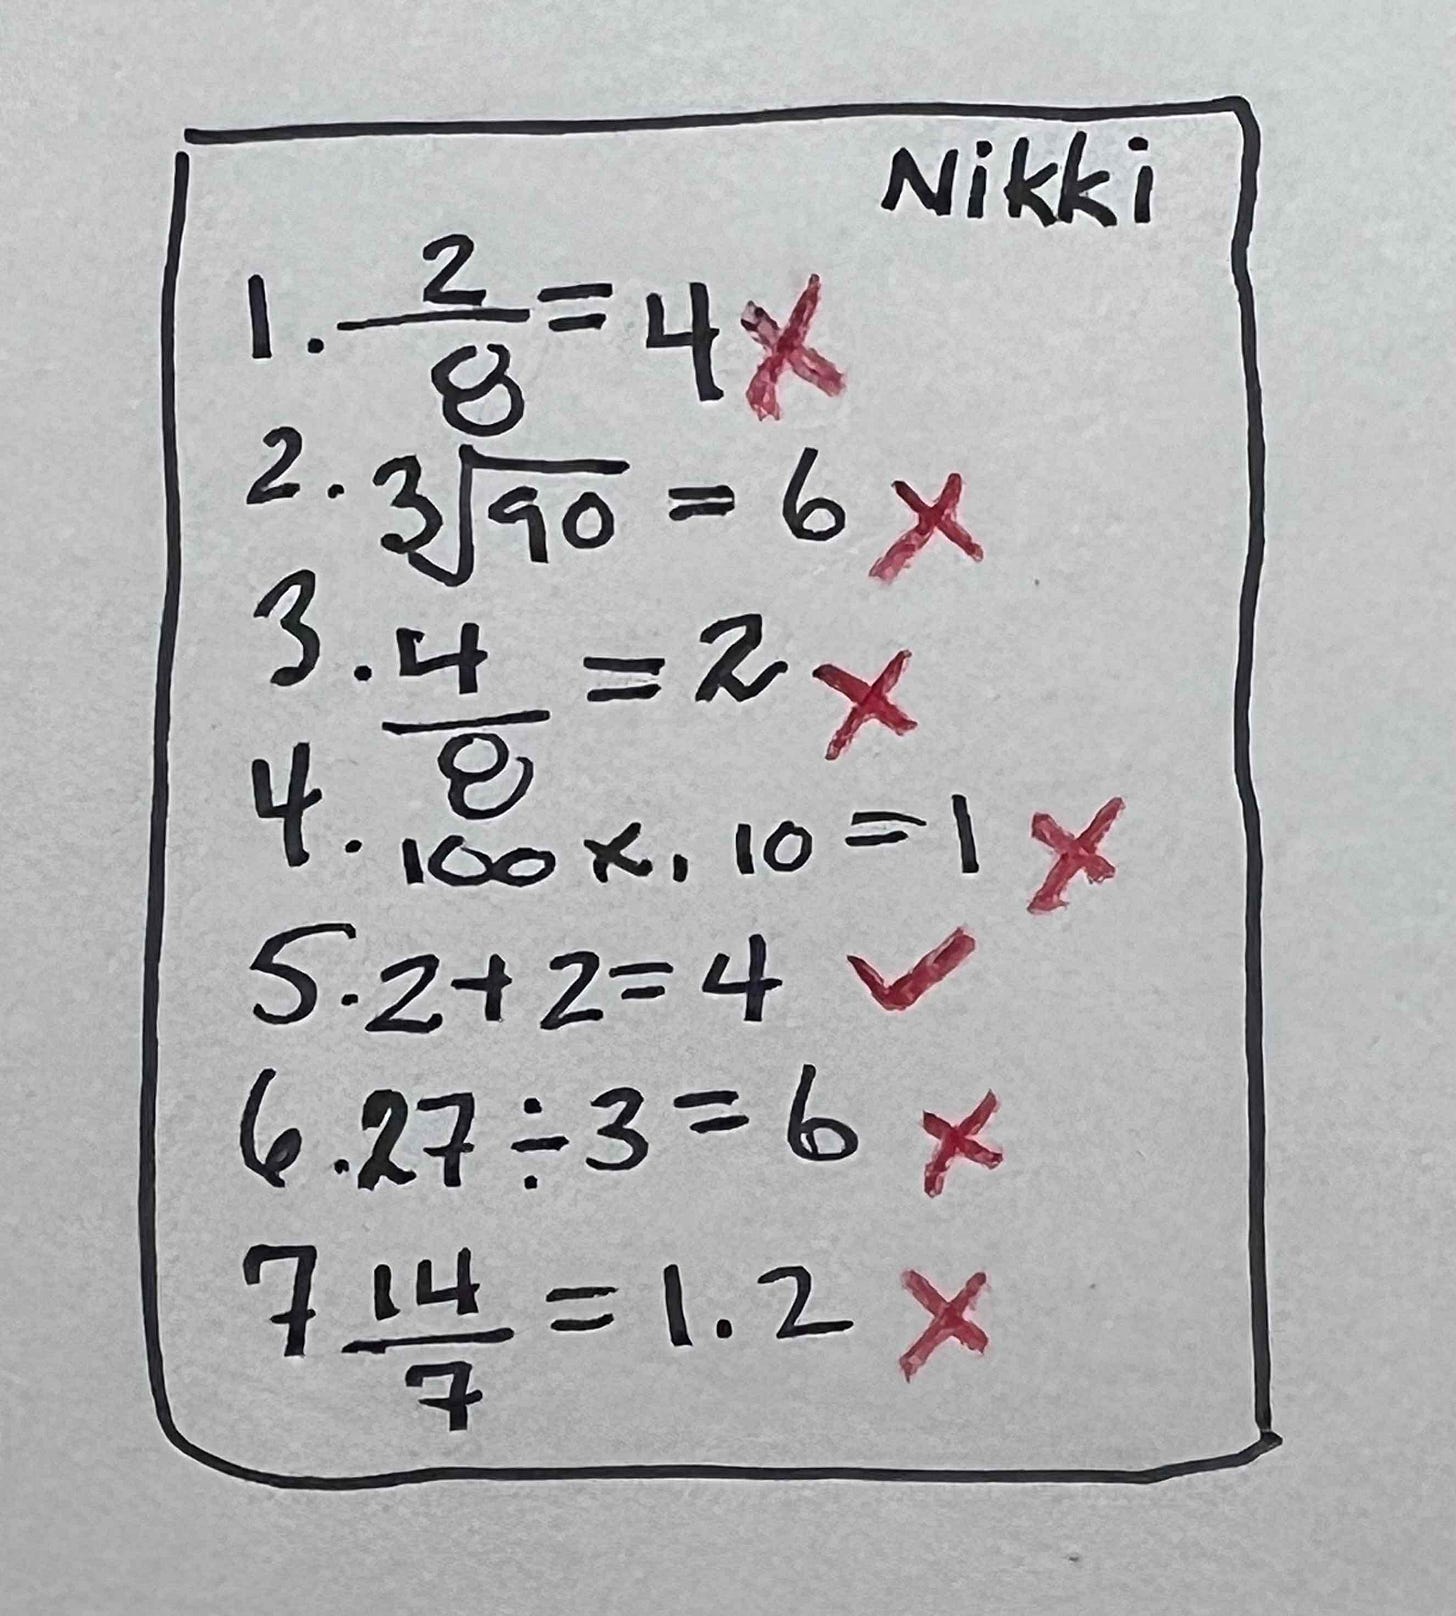 Nikki
1. 2/8 = 4 ✗
2. 3√90 = 6 ✗
3. 4/8 = 2 ✗
4. 100 x . 10 = 1 ✗
5. 2 + 2 = 4 ✓
6. 27 ÷ 3 = 6 ✗
7 14/7 = 1.2 ✗